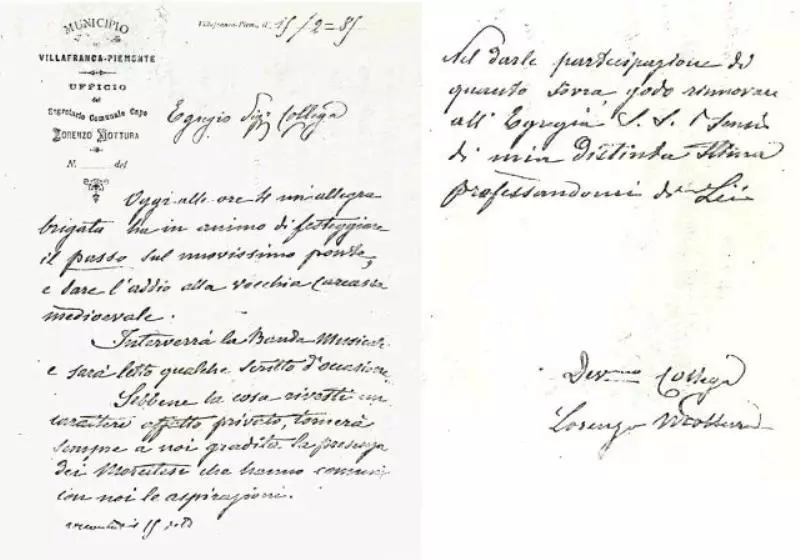 MUNICIPIO
DI
VILLAFRANCA-PIEMONTE
UFFICIO
del
Segretario Comunale Capo
LORENZO MOTTURA
N. del
Villafranca-Piem., li 15/2=85
Egregio Sig. Collega
Oggi alle ore 4 un'allegra
brigata ha in animo di festeggiare
il passo sul nuovissimo ponte,
e dare l'addio alla vecchia carcassa
medioevale.
Interverrà la Banda Musicale
e sarà letto qualche scritto d'occasione.
Sebbene la cosa rivesti un
carattere affatto privato, tornerà
sempre a noi gradita la presenza
dei Morettesi che hanno comuni
con noi le aspirazioni.
il 15 detto
Nel darle partecipazione di
quanto sovra, godo rinnovare
all' Egregia S. S. i sensi
di mia distinta stima
professandomi di Lei
Dev.mo Collega
Lorenzo Mottura